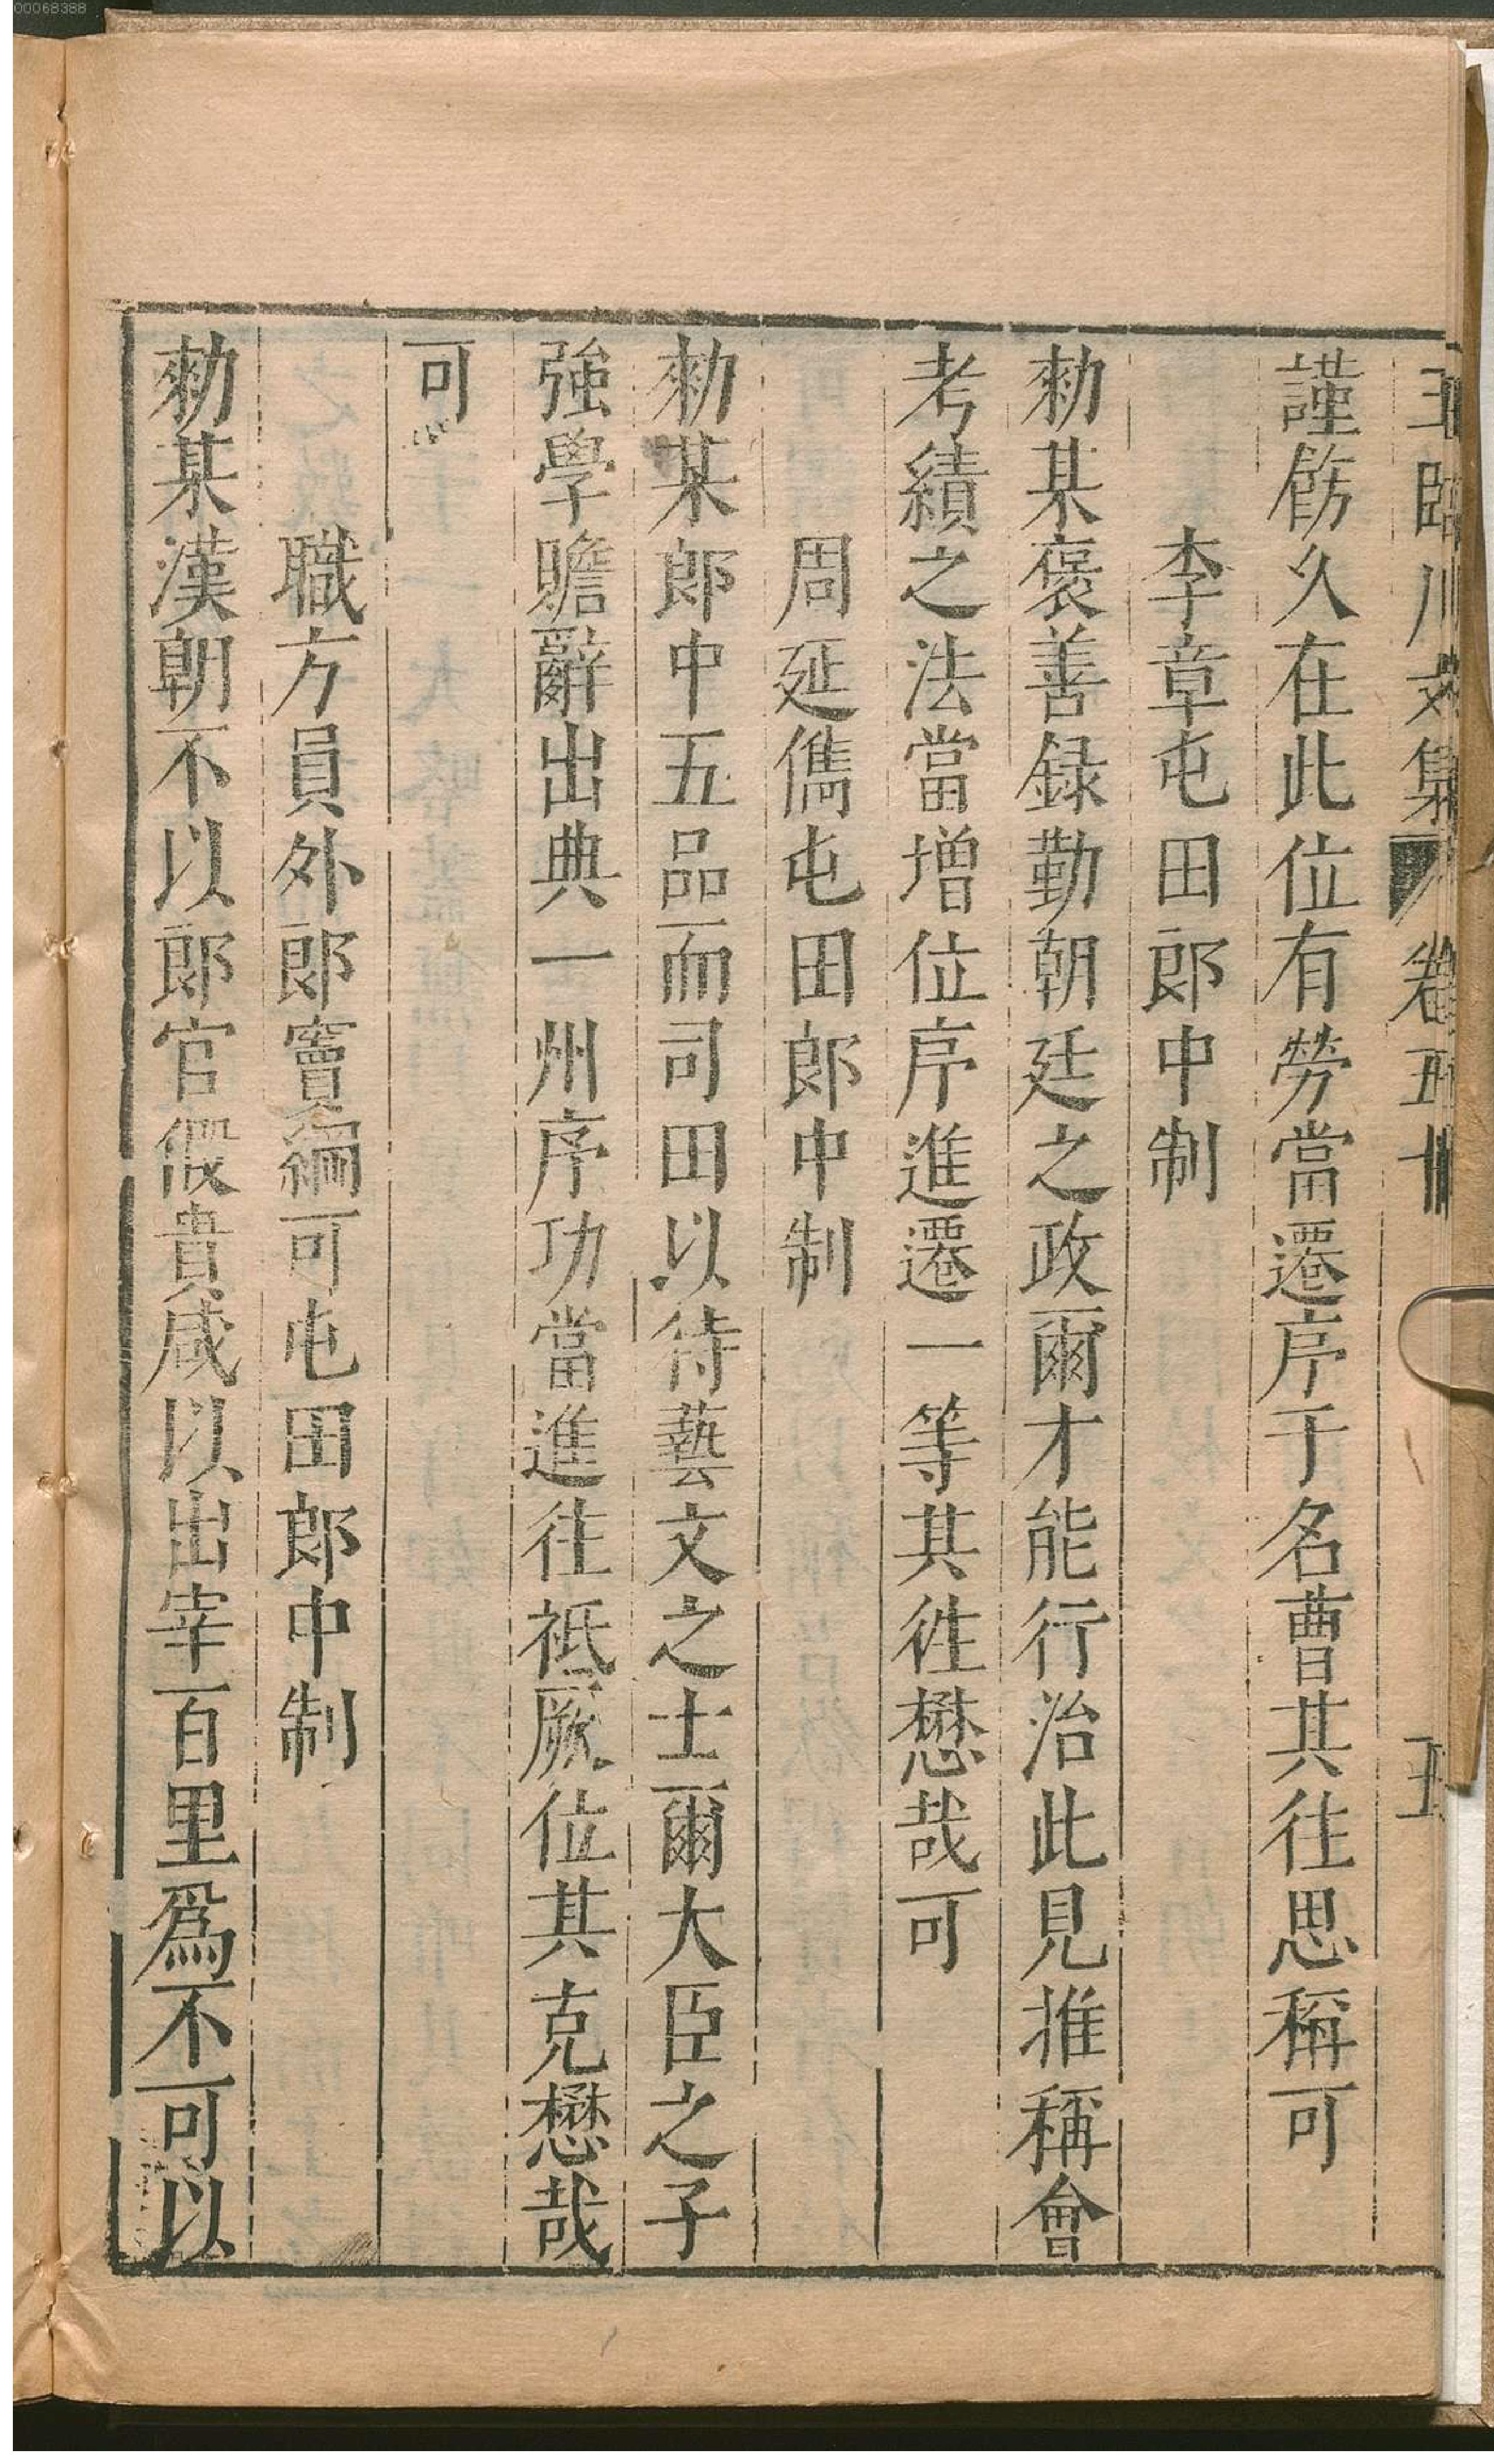 00068388
王臨川文集 卷五十 五
謹飭久在此位有勞當遷序于名曹其往思稱可
李章屯田郎中制
勑某褒善録勤朝廷之政爾才能行治此見推稱會
考績之法當增位序進遷一等其徃懋哉可
周延儁屯田郎中制
勑某郎中五品而司田以待藝文之士爾大臣之子
強學贍辭出典一州序功當進往祗厥位其克懋哉
可
職方員外郎竇綱可屯田郎中制
勑某漢朝不以郎官假貴戚以出宰百里爲不可以